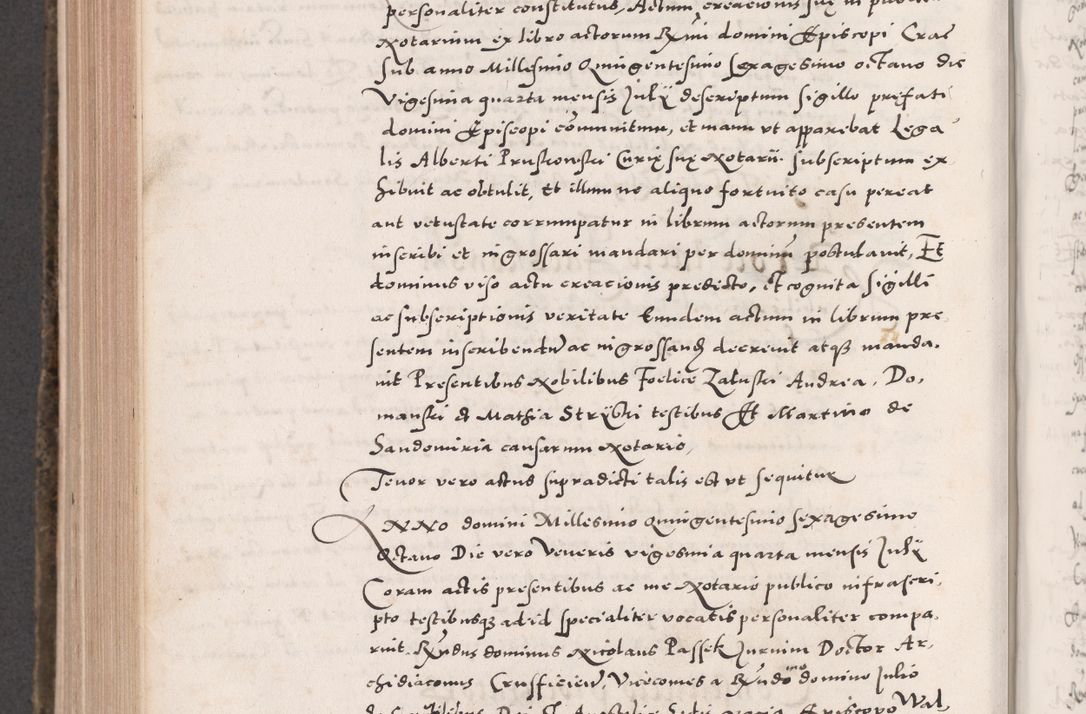 personaliter constitutus, Actum creacionis suę in publicum
Notarium ex libro actorum Rñdi domini Episcopi Crac
sub anno Millesimo Quingentesimo sexagesimo octavo die
Vigesima quarta mensis Julÿ descriptum sigillo prefati
domini Episcopi cõmunitum, et manu ut apparebat Lega
lis Alberti Pruskowski Curię suę Notarii subscriptum ex
hibuit ac obtulit, Et illum ne aliquo fortuito casu pereat
aut vetustate corrumpatur in librum actorum presentem
inscribi et ingrossari mandari per dominũ postulavit, Et
dominus viso actu creacionis predicto, et cognita sigilli
ac subscriptionis veritate Eundem actum in librum pre
sentem inscribendũ ac ingrossandũ decrevit atqꝫ manda,
vit Presentibus Nobilibus Foelice Zaluski Andrea, Do,
manski et Mathia Strÿbki testibus Et Martino de
Sandomiria causarum Notario,
Tenor vero actus supradicti talis est ut sequitur
ANNO domini Millesimo Quingentesimo sexagesimo
Octavo Die vero Veneris vigesima quarta mensis Julÿ
Coram actis presentibus ac me Notario publico infrascri,
pto testibusqꝫ ad id specialiter vocatis personaliter compa,
ruit Rñdus dominus Nicolaus Passek Jurium Doctor Ar,
chidiaconus Crusficien, Vicecomes a Rñdo domino Julio